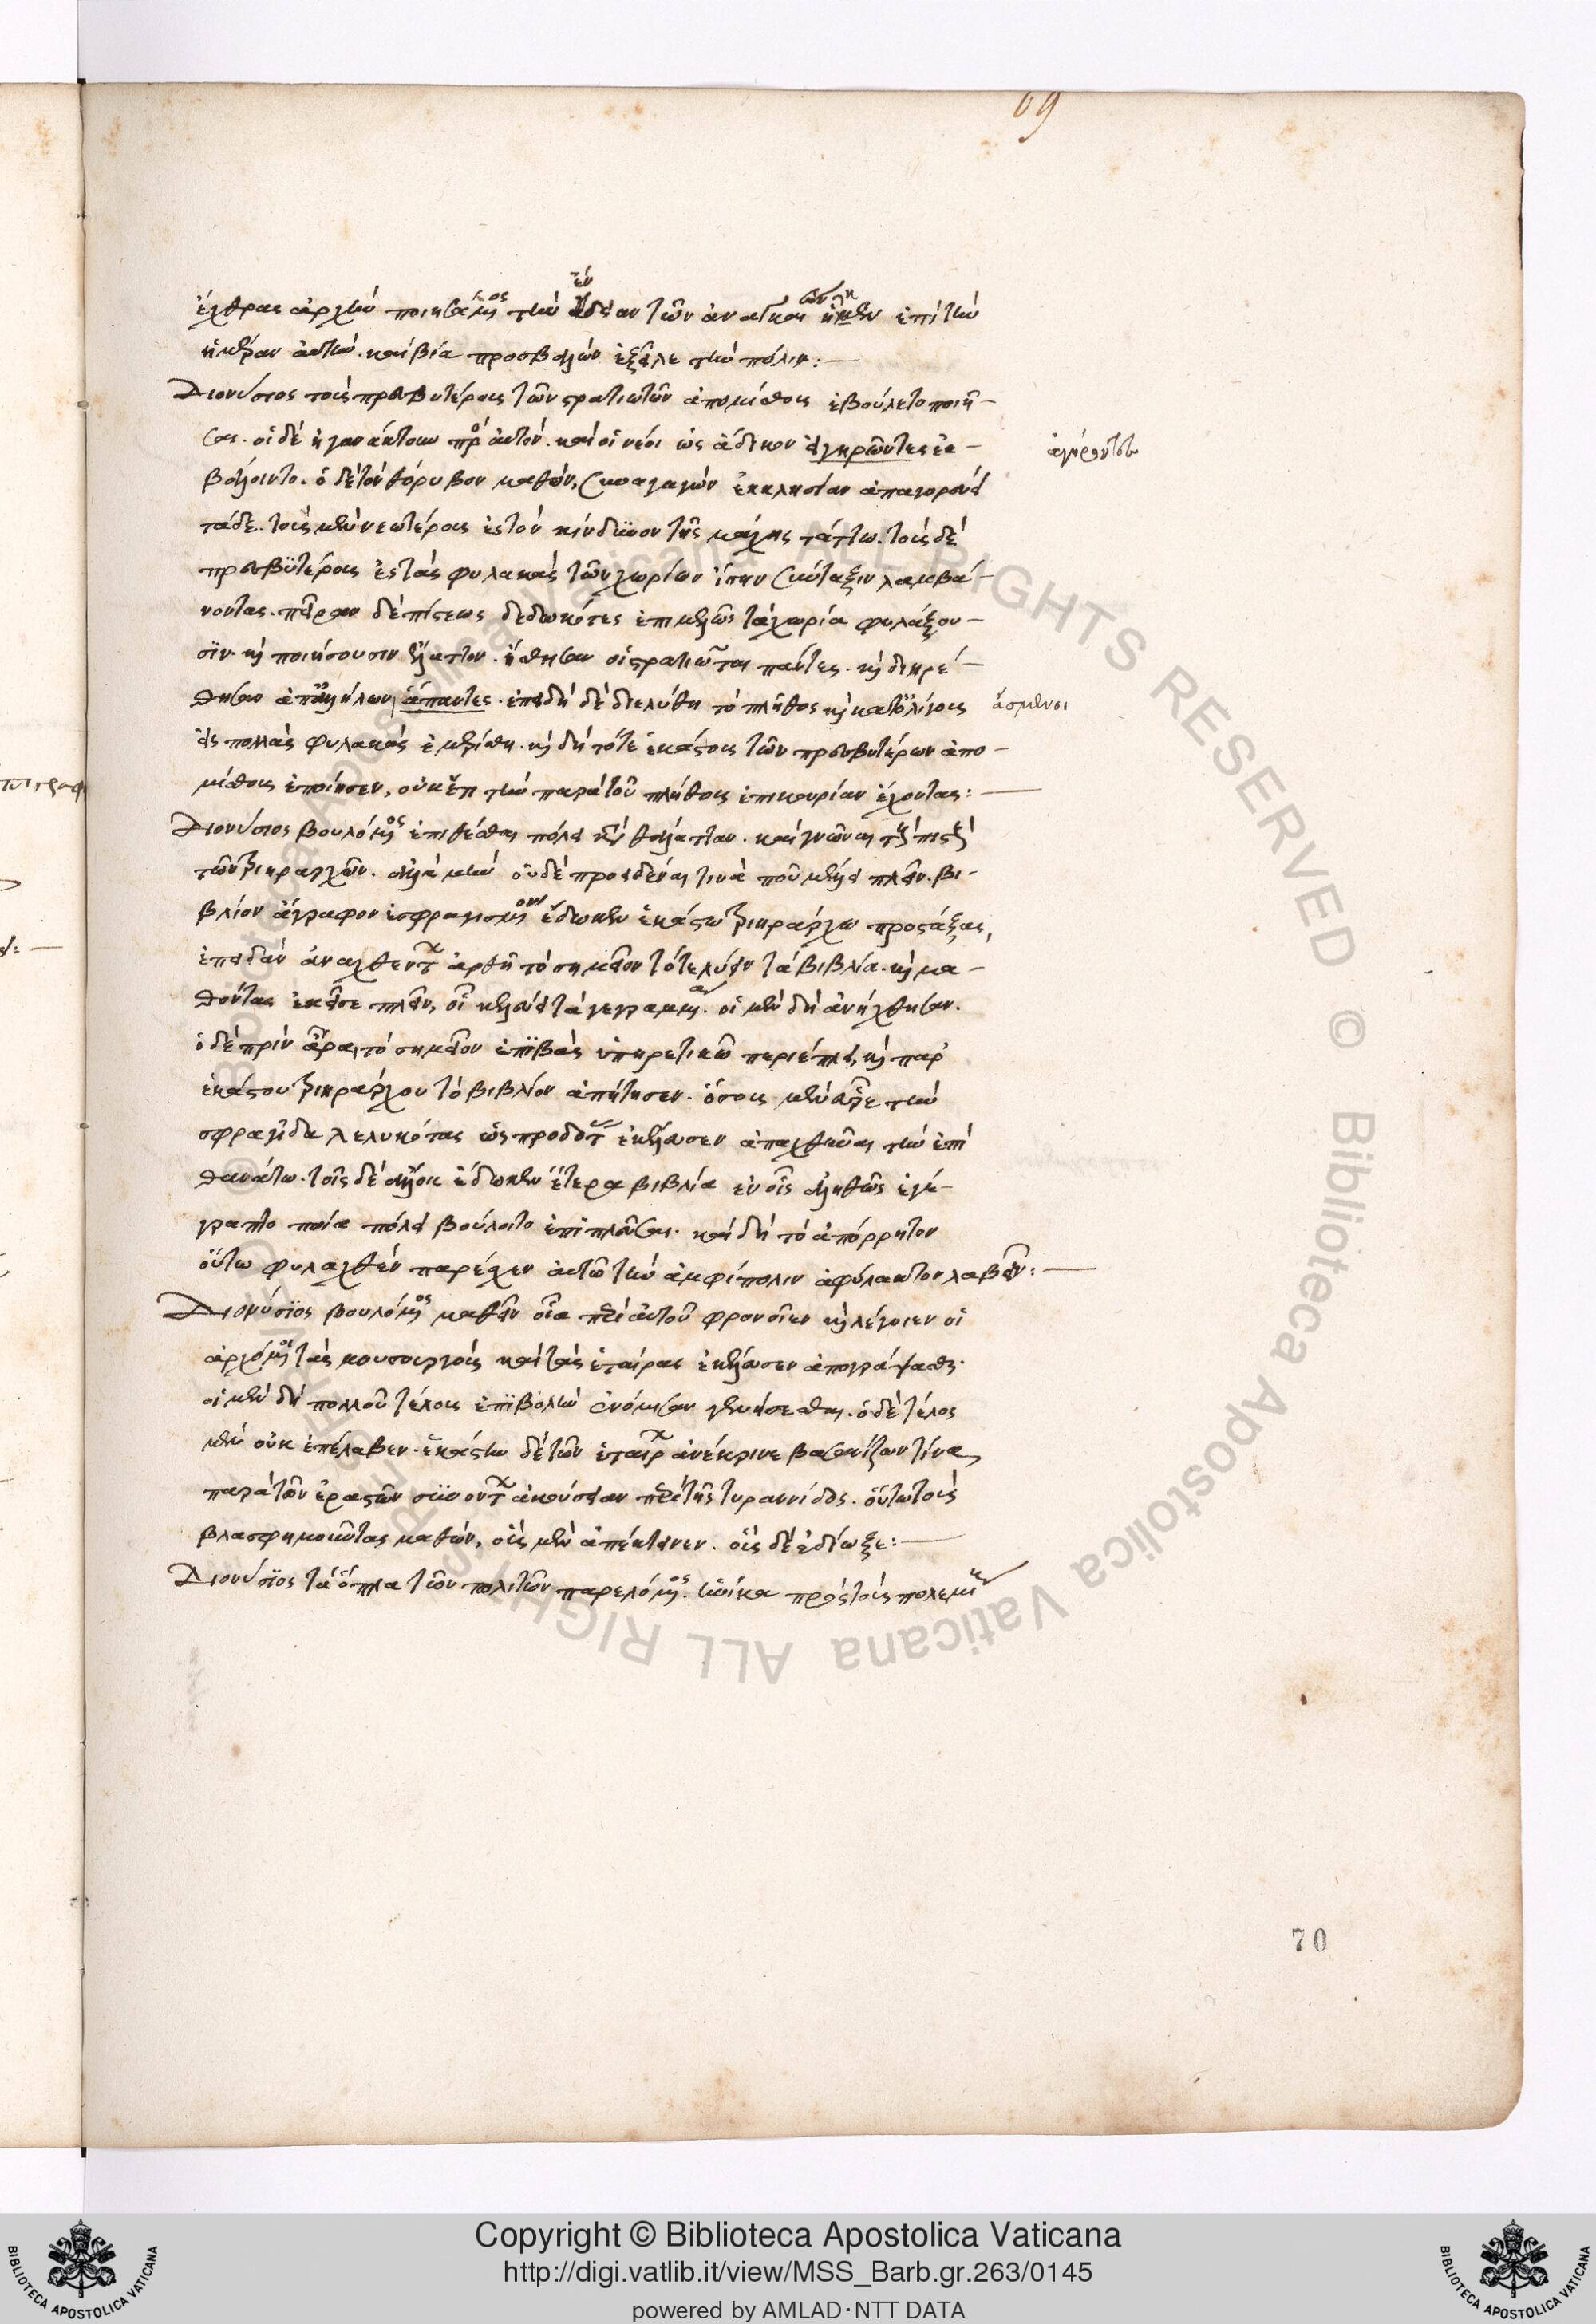 69
ἔχθρας ἀρχὴν ποιησάμενος τὴν ἔνδειαν τῶν ἀναγκαίων ἧκεν ἐπὶ τὴν
ἡμέραν αὐτὴν. καὶ βία προσβαλὼν ἐξεῖλε τὴν πόλιν:—
Διονύσιος τοὺς πρεσβυτέρους τῶν στρατιωτῶν ἀπομίσθους ἐβούλετο ποιῆ-
σαι. οἱ δὲ ἠγανάκτουν πρὸς αὐτὸν. καὶ οἱ νέοι ὡς ἄδικον
ὁ δὲ τὸν θόρυβον μαθὼν, συναγαγὼν ἐκκλησίαν
τάδε. τοὺς μὲν νεωτέρους ἐς τὸν κίνδυνον τῆς μάχης τάττω. τοὺς δὲ
πρεσβυτέρους ἐς τὰς φυλακὰς τῶν χωρίων σύνταξιν λαμβά-
νοντας. πεῖραν δὲ πίστεως δεδωκότες ἐπιμελῶς τὰ χωρία φυλάξου-
σιν. καὶ ποιήσουσιν ἔλαττον. ἥσθησαν οἱ στρατιῶται πάντες. καὶ διῃρέ-
θησαν ἀπ' ἀλλήλων ἅπαντες. ἐπειδὴ δὲ διελύθη τὸ πλῆθος καὶ κατ' ὀλίγους
ἄσμενοι
εἰς πολλὰς φυλακὰς ἐμερίσθη. καὶ δὴ τότε ἑκάστους τῶν πρεσβυτέρων ἀπο-
μίσθους ἐποίησεν, οὐκ ἔτι τὴν παρὰ τοῦ πλήθους ἐπικουρίαν ἔχοντας:—
Διονύσιος βουλόμενος ἐπιθέσθαι πόλει κατὰ θάλατταν. καὶ γνῶναι τὰς πίστεις
τῶν τριηράρχων. ἀλλὰ μὴν οὐδὲ προειδέναι τινὰ ποῦ μέλλει πλεῖν. βι-
βλίον ἄγραφον ἐσφραγισμένον ἔδωκεν ἑκάστω τριηράρχω προστάξας,
ἐπειδὰν ἀναχθέντων ἀρθῆ τὸ σημεῖον τότε λύειν τὰ βιβλία. καὶ μα-
θόντας ἐκεῖσε πλεῖν, οἷ κελεύει τὰ γεγραμμένα. οἱ μὲν δὴ ἀνήχθησαν.
ὁ δὲ πρὶν ἆραι τὸ σημεῖον ἐπιβὰς ὑπηρετικῶ περιέπλει, καὶ παρ'
ἑκάστου τριηράρχου τὸ βιβλίον ἀπήτησεν. ὅσους μὲν εὗρε τὴν
σφραγῖδα λελυκότας ὡς προδότας ἐκέλευσεν ἀπαχθῆναι τὴν ἐπὶ
θανάτω. τοῖς δὲ ἄλλοις ἔδωκεν ἕτερα βιβλία ἐν οἷς ἀληθῶς ἐγέ-
γραπτο ποία πόλει βούλοιτο ἐπιπλεῦσαι. καὶ δὴ τὸ ἀπόρρητον
οὕτω φυλαχθὲν παρέσχεν αὐτῶ τὴν ἀμφίπολιν ἀφύλακτον λαβεῖν:—
Διονύσιος βουλόμενος μαθεῖν οἷα περὶ αὐτοῦ φρονοῖεν καὶ λέγοιεν οἱ
ἀρχόμενοι τὰς μουσουργοὺς καὶ τὰς ἑταίρας ἐκέλευσεν ἀπογράψασθαι.
οἱ μὲν δὴ πολλοῦ τέλους ἐπιβολὴν ἐνόμισαν γενήσεσθαι. ὁ δὲ τέλος
μὲν οὐκ ἐπέλαβεν. ἑκάστην δὲ τῶν ἑταιρῶν ἀνέκρινε βασανίζων τίνα
παρὰ τῶν ἐραστῶν συνόντων ἀκούσειαν περὶ τῆς τυραννίδος. οὕτω τοὺς
βλασφημοῦντας μαθὼν, οὓς μὲν ἀπέκτεινεν. οὓς δὲ ἐδίωξε:—
Διονύσιος τὰ ὅπλα τῶν πολιτῶν παρελόμενος. ἡνίκα πρὸς τοὺς πολεμί
70
Copyright © Biblioteca Apostolica Vaticana
http://digi.vatlib.it/view/MSS_Barb.gr.263/0145
powered by AMLAD·NTT DATA